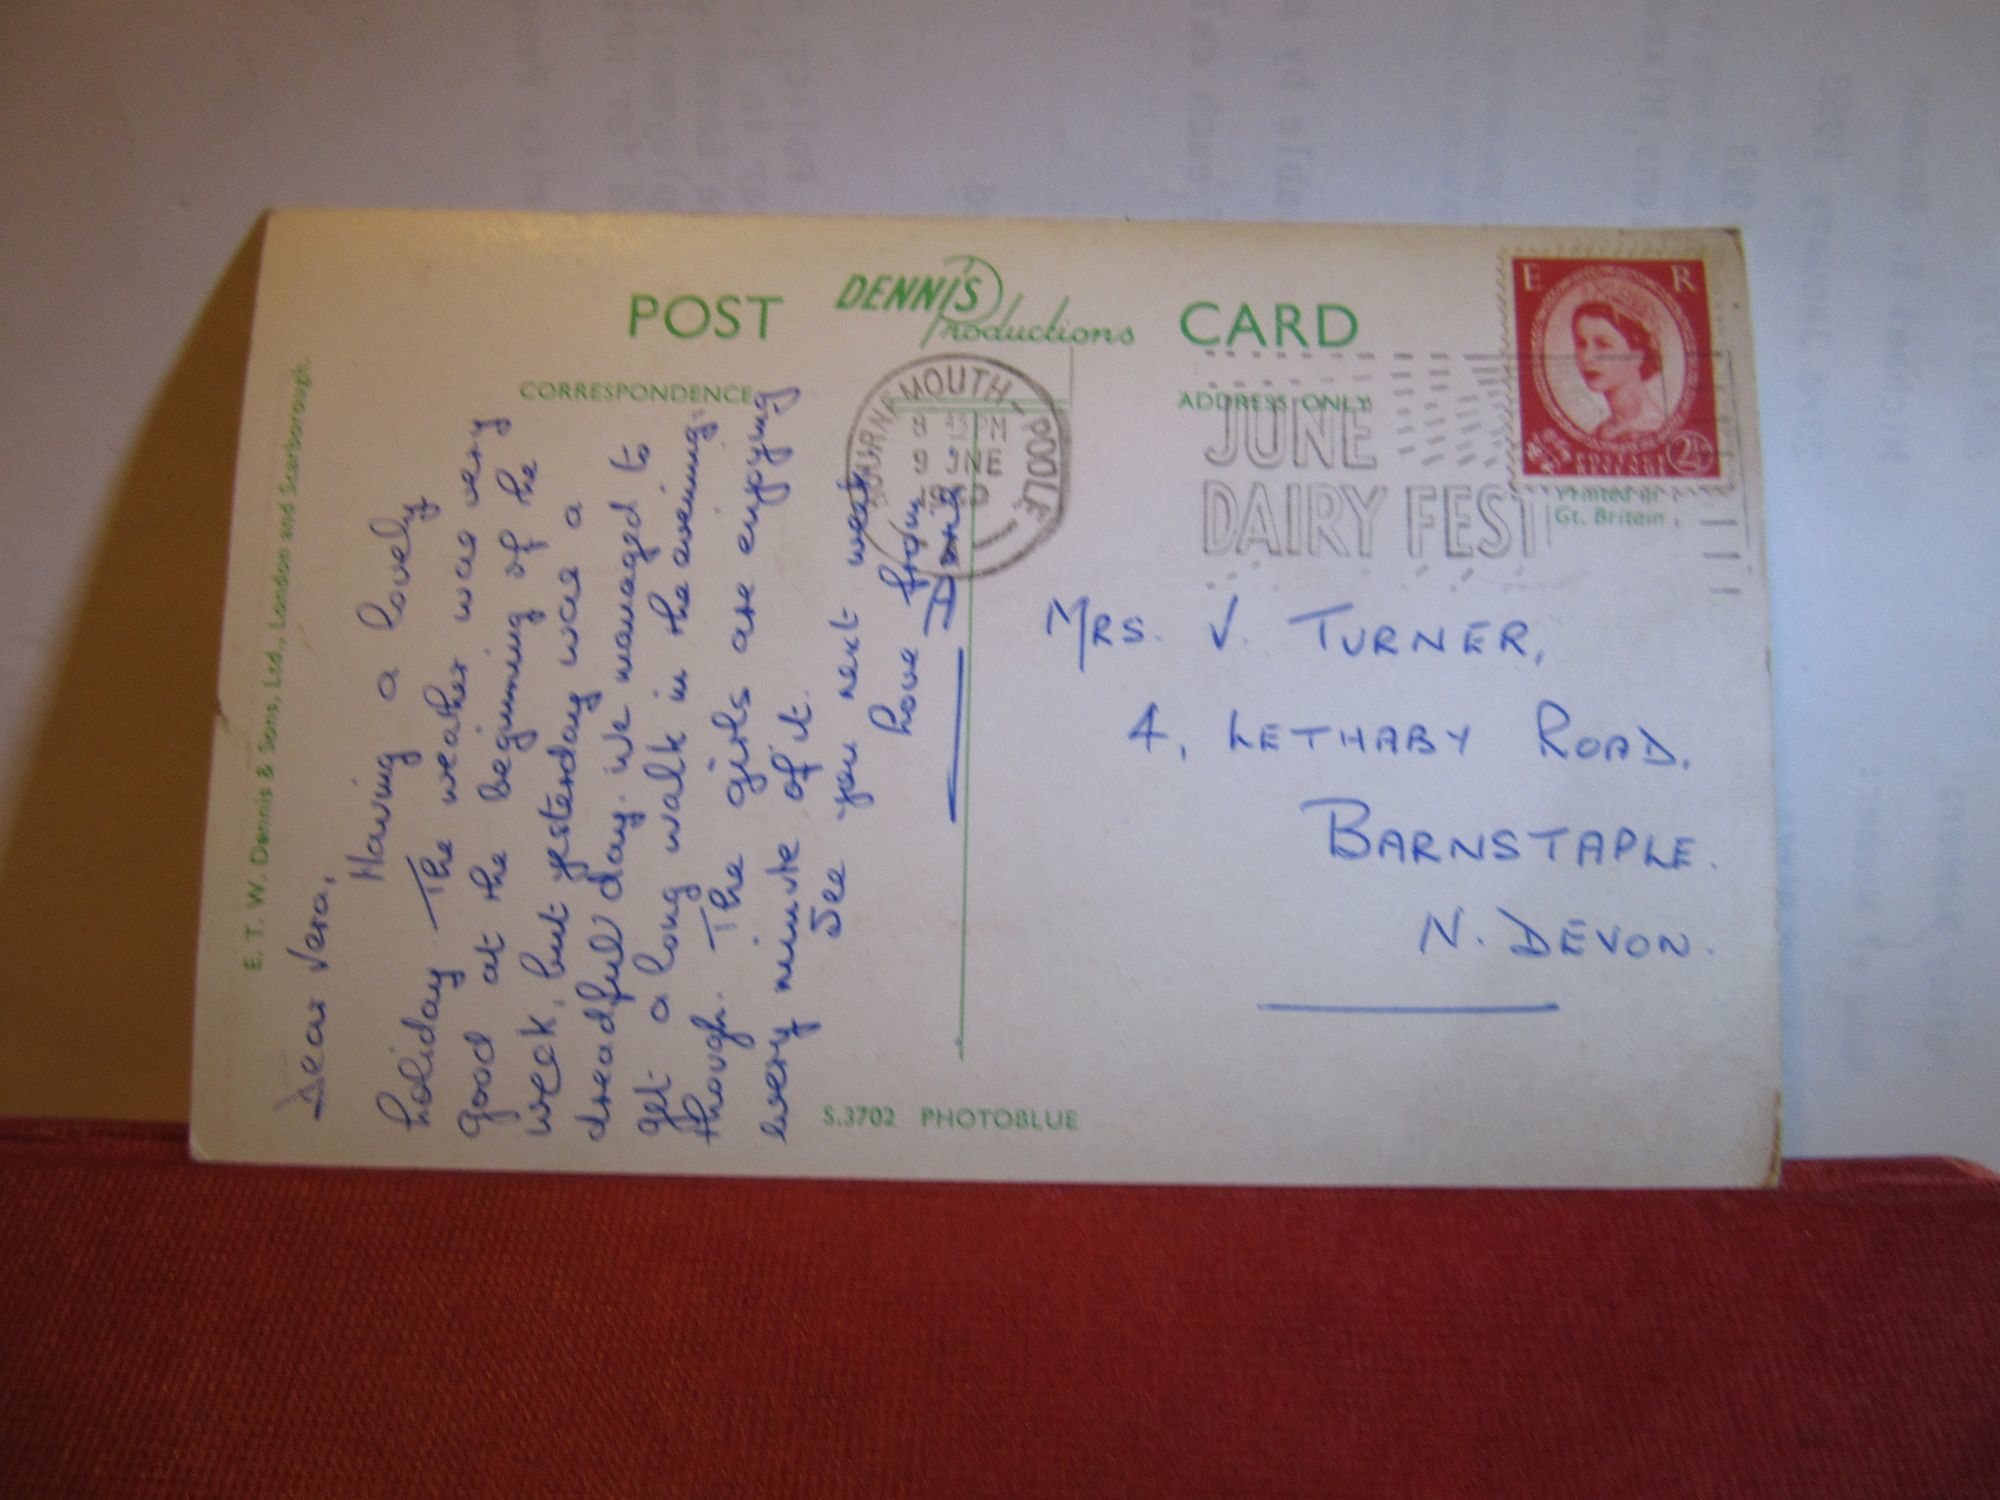 POST DENNIS Productions CARD
CORRESPONDENCE
ADDRESS ONLY
E R
2½
Printed in
Gt. Britain
BOURNEMOUTH-POOLE
PM
9 JNE
JUNE
DAIRY FEST
E. T. W. Dennis & Sons, Ltd., London and Scarborough.
Dear Vera,
Having a lovely
holiday. The weather was very
good at the beginning of the
week, but yesterday was a
dreadful day. we managed to
get a long walk in the evening
though. The girls are enjoying
every minute of it.
See you next week
love from
MRS. V. TURNER,
4, LETHABY ROAD,
BARNSTAPLE.
N. DEVON.
S.3702 PHOTOBLUE